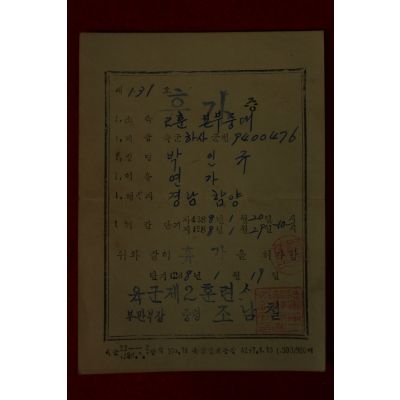 제 131 호
휴가증
1. 소속 2훈 본부중대
1. 계급 육군 하사 군번 9400476
1. 성명 박인규
1. 이유 연가
1. 행선지 경남 함양
1. 기간 단기 자 4288년 1월 20일
지 4288년 1월 29일
위와 같이 휴가을 허가함
단기 4288년 1월 19일
육군제2훈련소
부관부장 중령 조남철